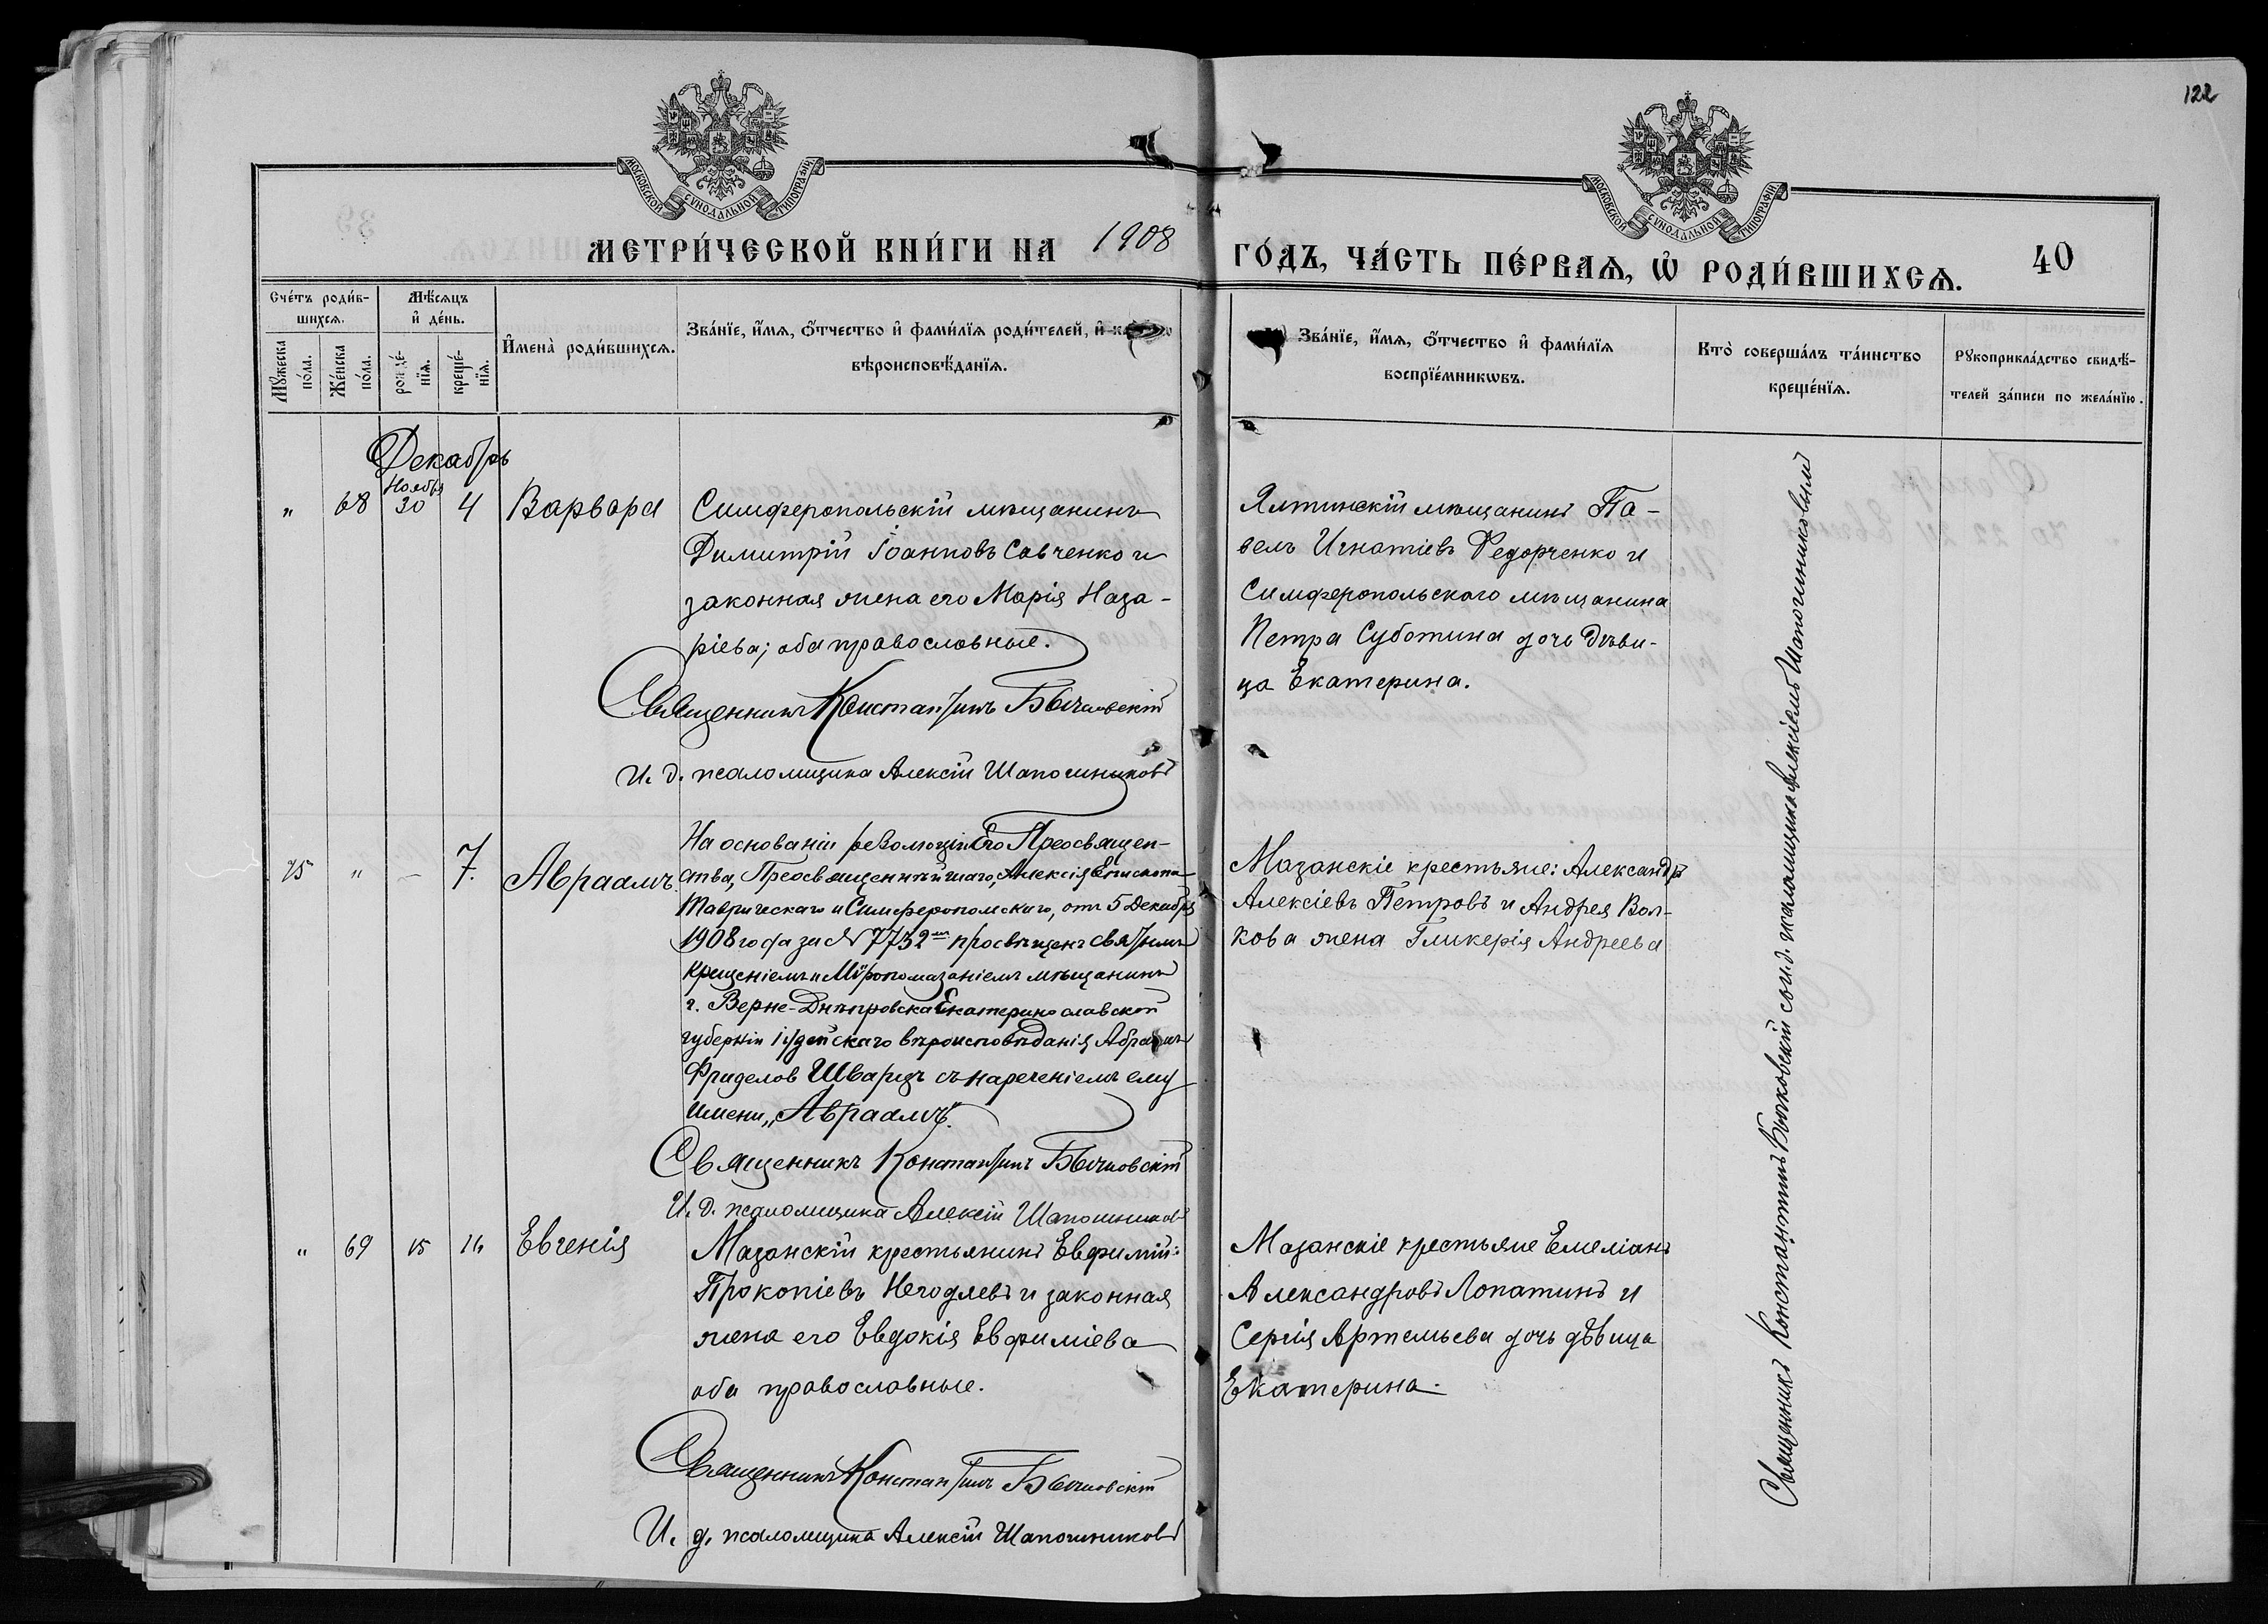 122
МОСКОВСКОЙ СѴНОДАЛЬНОЙ ТИПОГРАФІИ
МОСКОВСКОЙ СѴНОДАЛЬНОЙ ТИПОГРАФІИ
МЕТРИ́ЧЕСКОЙ КНИ́ГИ НА 1908 ГО́ДЪ, ЧА́СТЬ ПЕ́РВАѦ, Ѡ҆ РОДИ́ВШИХСѦ. 40
Сче́тъ роди́в-
шихсѧ.
Мꙋ́жеска
по́ла.
Же́нска
по́ла.
Мѣ́сѧцъ
и҆ де́нь.
рожде́-
нїѧ.
креще́-
нїѧ.
И҆мена̀ роди́вшихсѧ.
Зва́нїе, и҆́мѧ, ѻ҆́тчество и҆ фами́лїѧ роди́телей, и҆
вѣроисповѣ́данїѧ.
Зва́нїе, и҆́мѧ, ѻ҆́тчество и҆ фами́лїѧ
воспрїе́мникѡвъ.
Кто̀ соверша́лъ та́инство
креще́нїѧ.
Рꙋкоприкла́дство свидѣ́-
телей за́писи по жела́нїю.
Декабрь
Ноября
" 68 30 4 Варвара
Симферопольскій мѣщанинъ
Димитрій Іоанновъ Савченко и
законная жена его Марія Наза-
ріева; оба православные.
Священникъ Константинъ Бычковскій
И. д. псаломщика Алексій Шапошниковъ
Ялтинскій мѣщанинъ Па-
велъ Игнатіевъ Федорченко и
Симферопольского мѣщанина
Петра Суботина дочь дѣви-
ца Екатерина.
75 " – 7. Авраамъ.
На основаніи резолюціи Его Преосвящен-
ства, Преосвященнѣйшаго, Алексія Епископа
Таврическаго и Симферопольскаго, отъ 5 Декабря
1908 года за № 7732мъ просвѣщенъ святымъ
крещеніемъ и Мѵропомазаніемъ мѣщанинъ
г. Верне-Днѣпровска Екатеринославской
губерніи іудейскаго вѣроисповѣданія Абрамъ
Фриделов Шварцъ съ нареченіемъ ему
имени „Авраамъ".
Священникъ Константинъ Бычковскій
И. д. псаломщика Алексій Шапошниковъ
Мазанскіе крестьяне: Александръ
Алексіевъ Петровъ и Андрея Вол-
кова жена Гликерія Андреева
" 69 15 16 Евгенія
Мазанскій крестьянинъ Евфимій
Прокопіевъ Негодяевъ и законная
жена его Евдокія Евфиміева
оба православные.
Священникъ Константинъ Бычковскій
И. д. псаломщика Алексій Шапошниковъ
Мазанскіе крестьяне Емеліанъ
Александровъ Лопатинъ и
Сергія Артемьева дочь дѣвица
Екатерина.
Священникъ Константинъ Бычковскій съ и. д. псаломщика Алексіемъ Шапошниковымъ